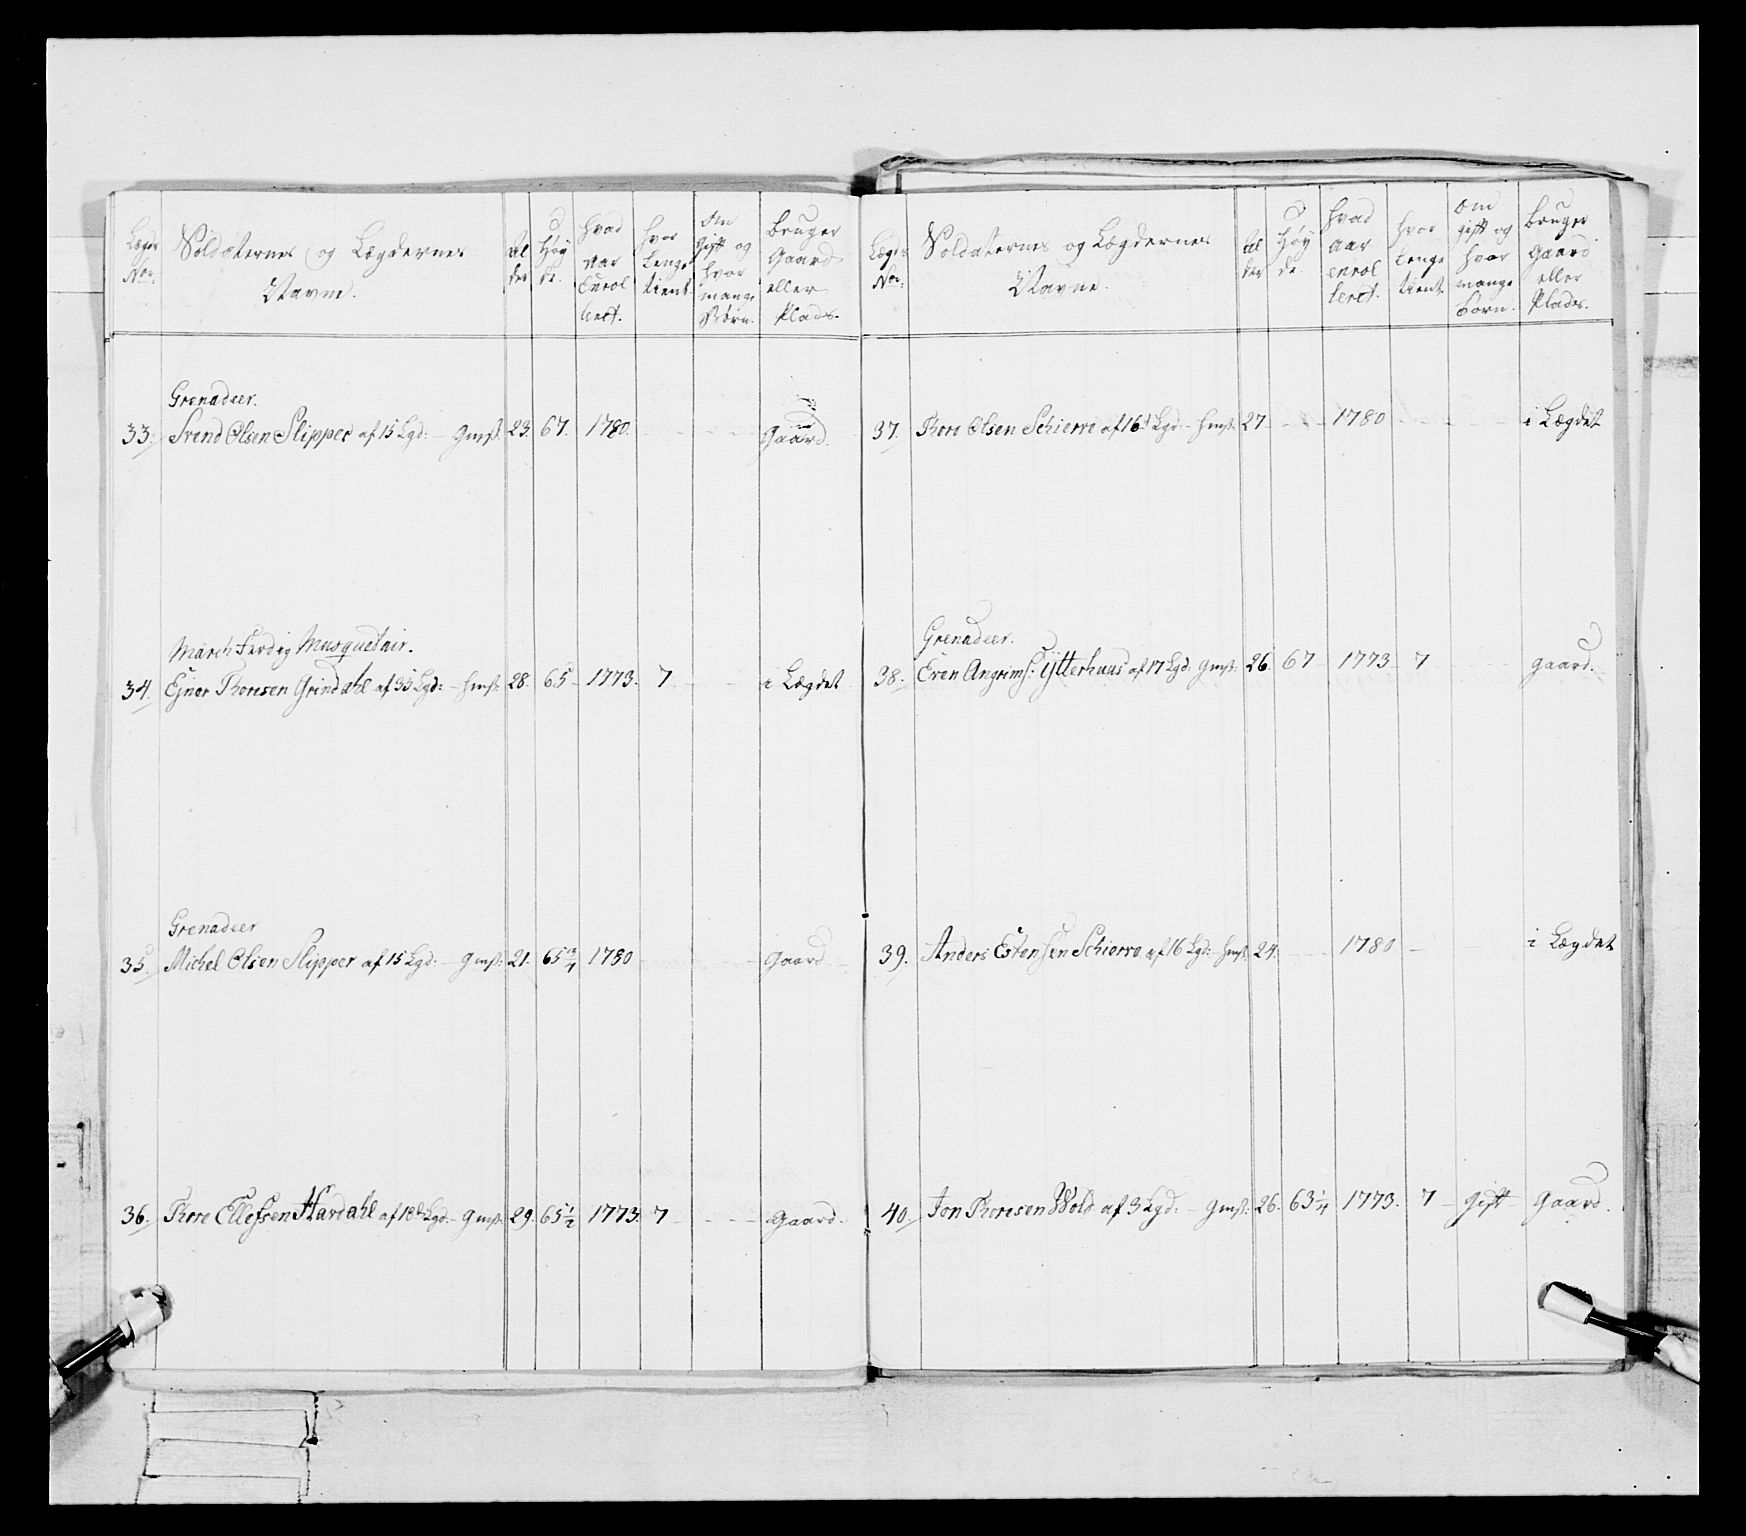 Lægds No:
Soldaternes og Lægdernes Navne.
Al der
Høy de.
hvad aar Enrol leret.
hvor Lenge tient
Om Gift og hvor mange Børn.
bruger Gaard eller Plads.
Grenadeer.
33. Svend Olsen Slipper af 15 Lgd: - Gmst: 23. 67. 1780. Gaard.
March Færdig Musquetair.
34. Ejner Thoresen Grindahl af 35 Lgd: - Hmst: 28. 65 - 1773. 7 i Lægdet
Grenadeer
35. Michel Olsen Slipper af 15 Lgd: - Gmst: 21. 65 3/4 1780 Gaard
36. Thore Ellefsen Hardahl af 18de Lgd: - Gmst: 29. 65 1/2 1773. 7 Gaard.
Lægds No:
Soldaternes og Lægdernes Navne.
Al der
Høy de.
hvad aar enrol leret.
hvor Lenge tient
om gift og hvor mange børn.
bruger Gaard eller Plads.
37. Thore Olsen Schierve af 16 Lgd - Hmst: 27 1780 i Lægdet
Grenadeer.
38. Even Angrims: Ytterhuus af 17 Lgd: Gmst: 26. 67 1773 7 gaard.
39. Anders Estensen Schierve af 16 Lgd: - Hmst: 24. 1780 i Lægdet
40. Jon Thoresen Wold af 3 Lgd: - Gmst: 26. 63 1/4 1773. 7 Gift Gaard.